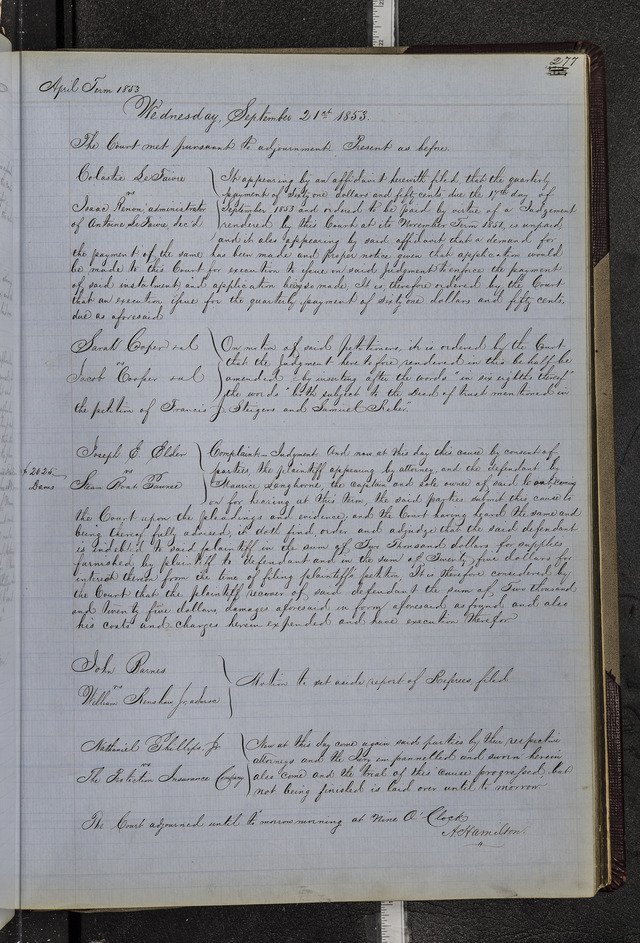 277
April Term 1853
Wednesday, September 21st 1853.
The Court met pursuant to adjournment Present as before
Colastie LeFaivre
vs
Isaac administrator
of Antoine LeFaivre, dec'd
It appearing by an affidavit herewith filed, that the quarterly
payment of sixty one dollars and fifty cents, due the 17th day of
September 1853 and ordered to be paid by virtue of a Judgement
rendered by this Court at its November Term 1851, is unpaid
and it also appearing by said affidavit that a demand for
the payment of the same has been made and proper notice given that application would
be made to this Court for execution to issue on said Judgment to enforce the payment
of said instalment and application being so made. It is, therefore ordered by the Court
that an execution issue for the quarterly payment of sixty one dollars and fifty cents,
due as aforesaid
Sarah Cooper et al
vs
Jacob Cooper et al
On motion of said Petitioners, it is ordered by the Court
that the Judgment heretofore rendered in this behalf be
amended by inserting after the words "in six eighths thereof"
the words "both subject to the Deed of trust mentioned in
the petition of Francis J. Stingers and Samuel Raber."
$2025.
Dams
Joseph E Elder
vs
Steam Boat Pawnee
Complaint – Judgment. And now at this day this cause by consent of
parties, the plaintiff appearing by attorney, and the defendant by
Maurice Langhorne, the captain and sole owner of said boat, coming
on for hearing at this term, the said parties submit this cause to
the Court upon the pleadings and evidence, and the Court having heard the same and
being thereof fully advised, it doth find, order and adjudge that the said defendant
is indebted to said plaintiff in the sum of Two Thousand dollars, for supplies
furnished by plaintiff to defendant and in the sum of Twenty five dollars for
interest thereon from the time of filing plaintiffs petition, It is therefore considered by
the Court that the plaintiff recover of said defendant the sum of Two thousand
and twenty five dollars damages aforesaid in form aforesaid as found and also
his costs and charges herein expended and have execution therefor
John Barnes
vs
William Renshaw Jr, adm'r
Motion to set aside report of Referees, filed
Nathaniel Phillips, Jr
vs
The Protection Insurance Company
Now at this day come again said parties by their respective
attorneys and the Jury empannelled and sworn herein
also come and the trial of this cause progressed, but
not being finished is laid over until to morrow
The Court adjourned until to morrow morning at Nine O'Clock
A Hamilton.